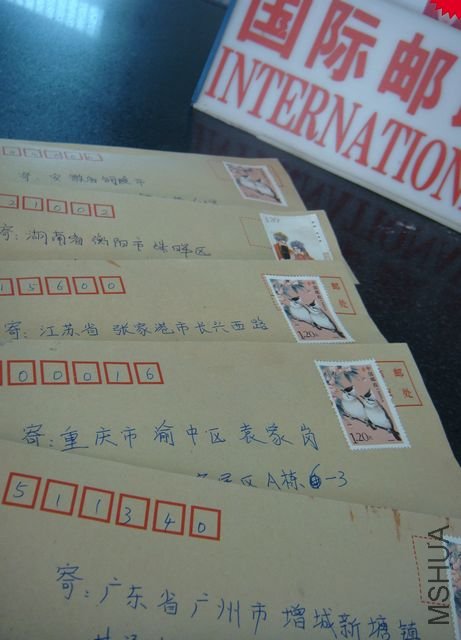 国际邮
INTERNATION
寄: 安徽省铜陵市
21002
寄: 湖南省衡阳市珠晖区
15600
邮
处
寄: 江苏省 张家港市长兴西路
1.20元
00016
邮
处
寄: 重庆市 渝中区 袁家岗
1.20元
A栋6-3
511340
寄: 广东省 广州市 增城新塘镇
MSHUA